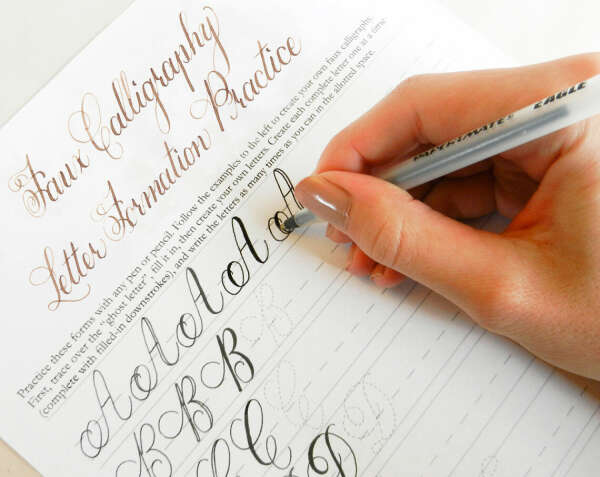 Faux Calligraphy
Letter Formation Practice
Practice these forms with any pen or pencil. Follow the examples to the left to create your own faux calligraphy.
First, trace over the "ghost letter", fill it in, then create your own letters. Create each complete letter one at a time
(complete with filled-in downstrokes), and write the letters as many times as you can in the allotted space.
PAPER MATE EAGLE
A A A A A
B B B B
C C C C
D D D